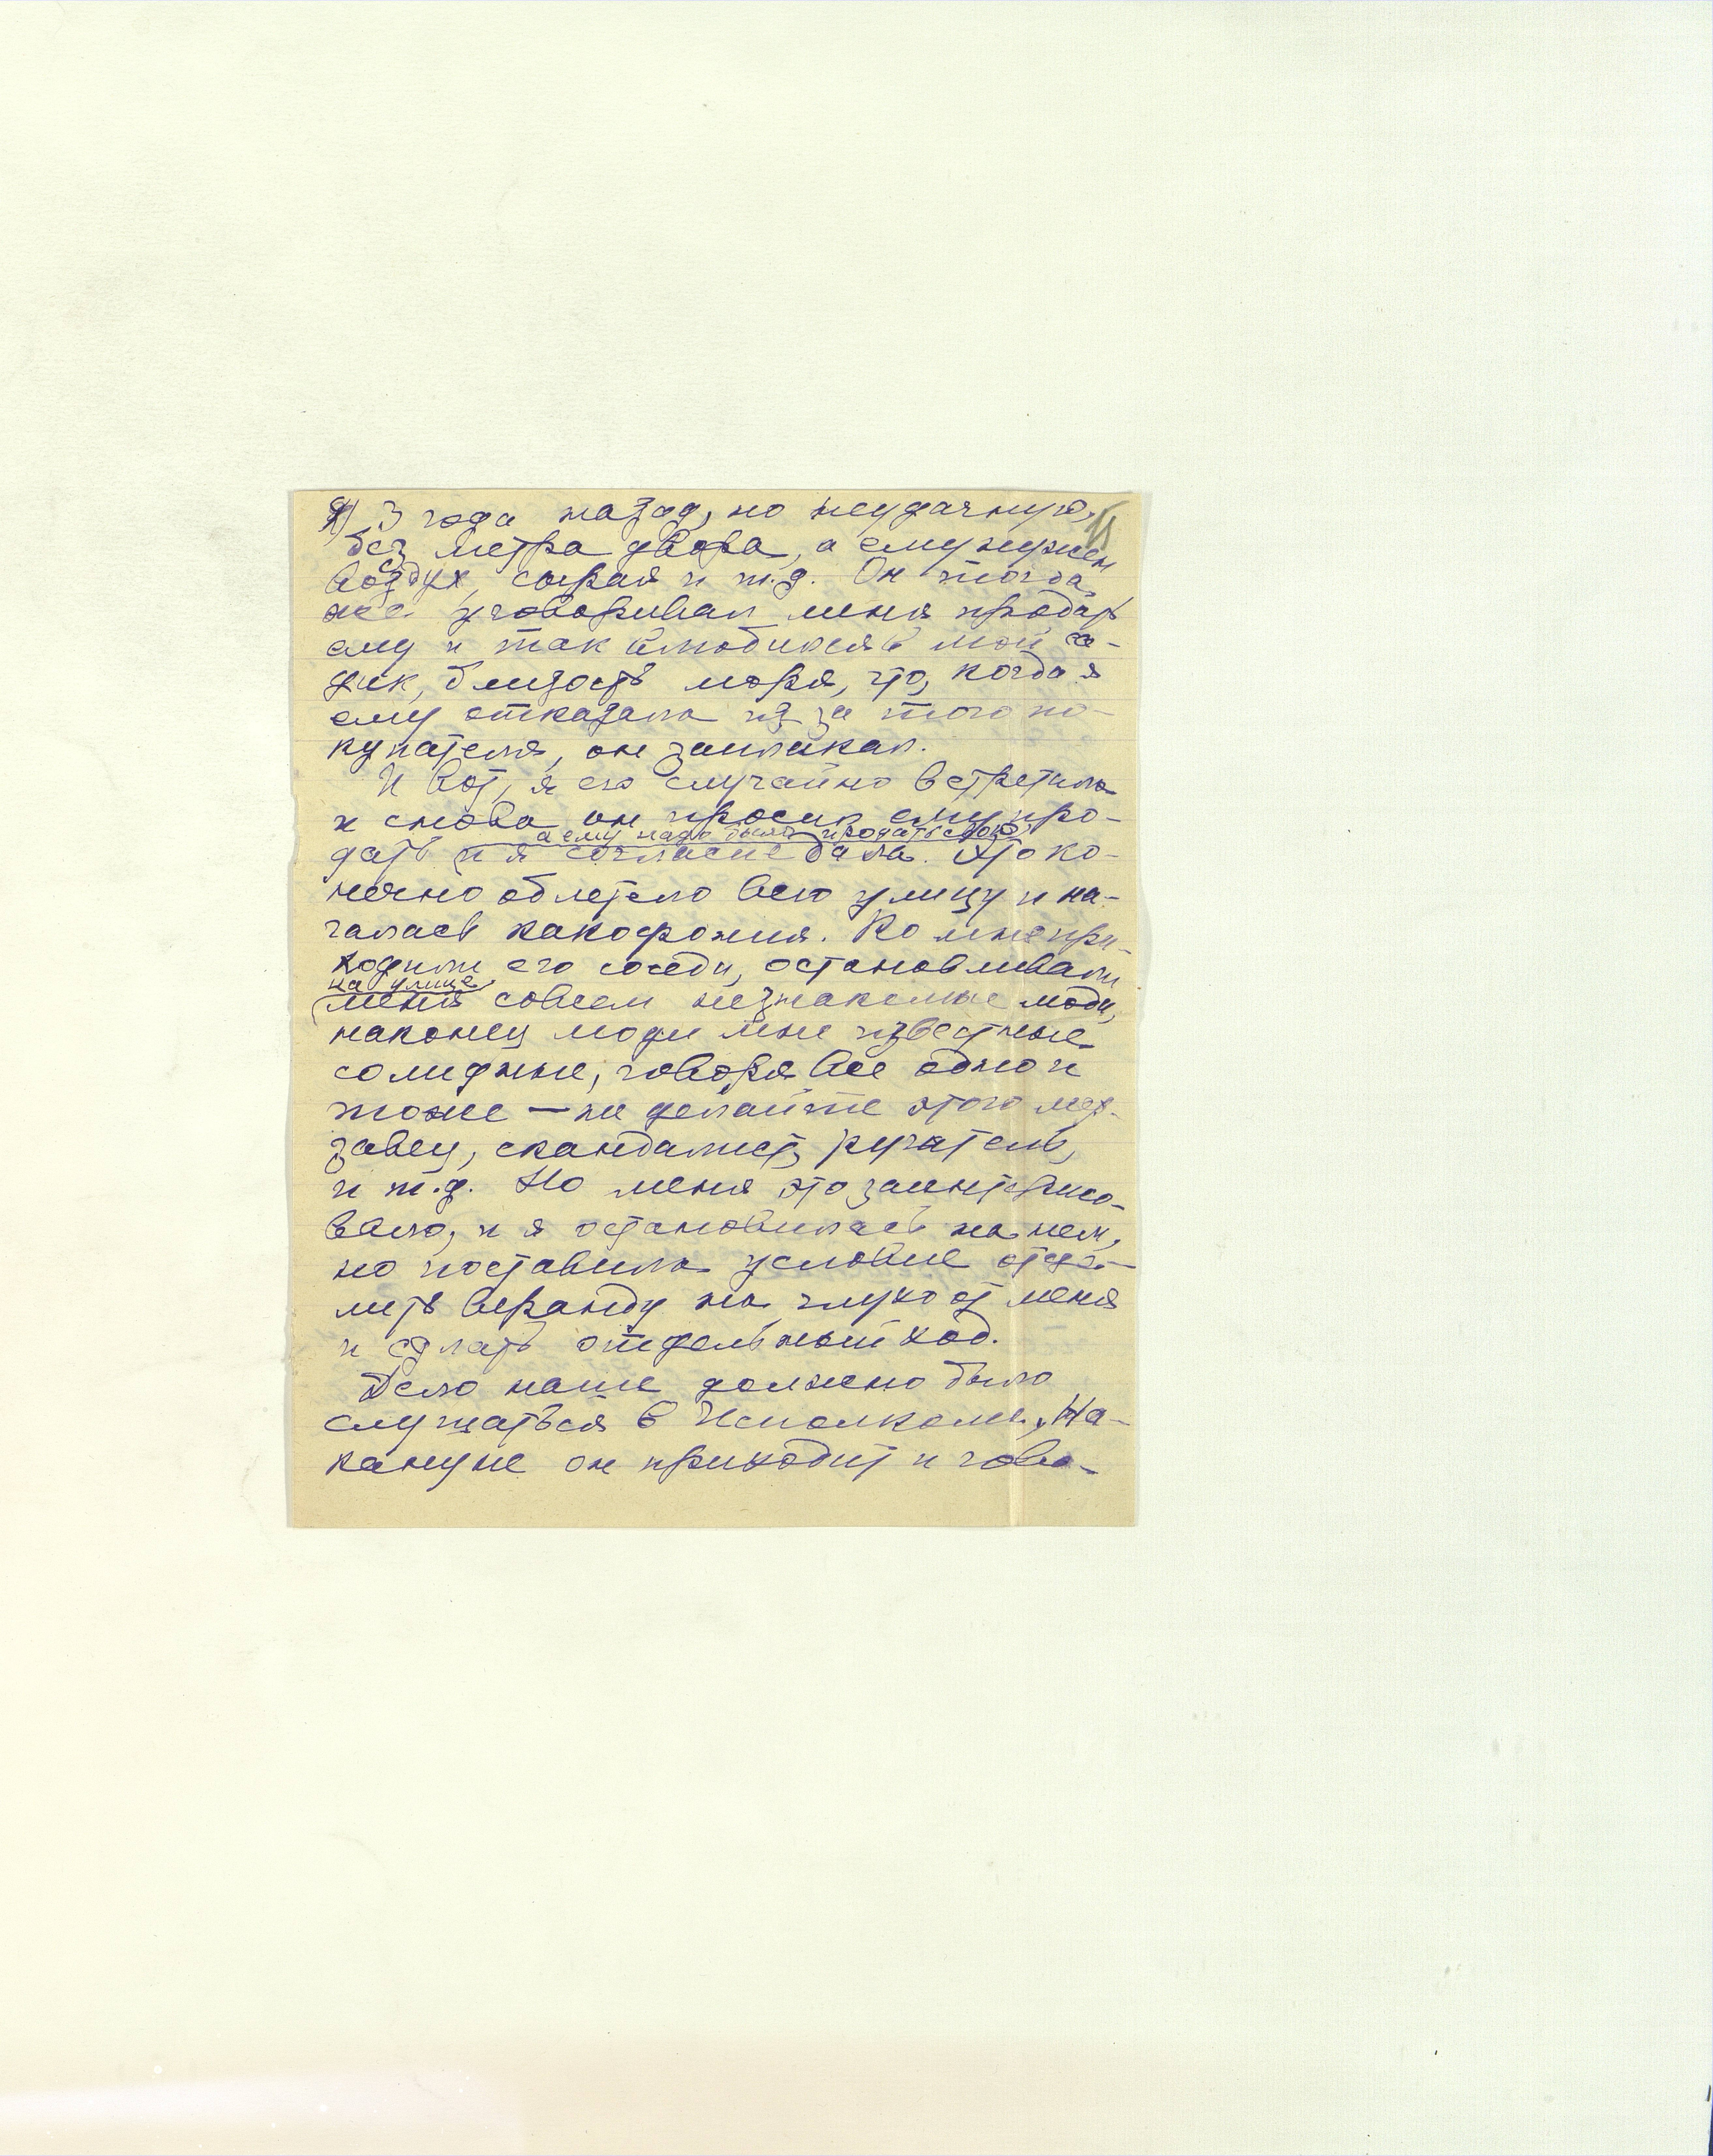 9) 3 года назад, но неудачную,
без метра двора, а ему нужен
воздух, сырая и т.д. Он тогда
же уговаривал меня продать
ему и так влюбился в мой са-
дик, близость моря, что, когда я
ему отказала из за того по-
купателя, он заплакал.
И вот, я его случайно встретила
и снова он просил ему про-
а ему надо было продать свою
дать и я согласие дала. Это ко-
нечно облетело всю улицу и на-
чалась какофония. Ко мне при-
ходили его соседи, останавливали
на улице
меня совсем незнакомые люди,
наконец люди мне известные
солидные, говоря все одно и
тоже — не делайте этого мер-
завец, скандалист, ругатель,
и т.д. Но меня это заинтересо-
вало, и я остановилась на нем,
но поставила условие отде-
лить веранду на глухо от меня
и сделать отдельный ход.
Дело наше должно было
слушаться в Исполкоме. На-
кануне он приходит и гово-